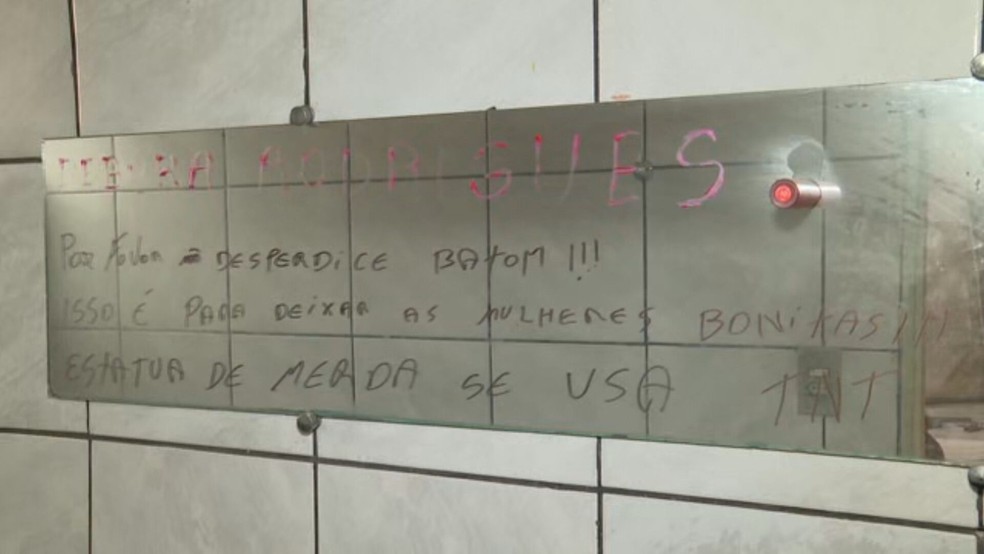 RODRIGUES
Por Favor DESPERDiCE BATOM !!!
ISSO É PARA DEiXAR AS MULHERES BONiTAS!!!
ESTATUA DE MERDA SE USA TNT